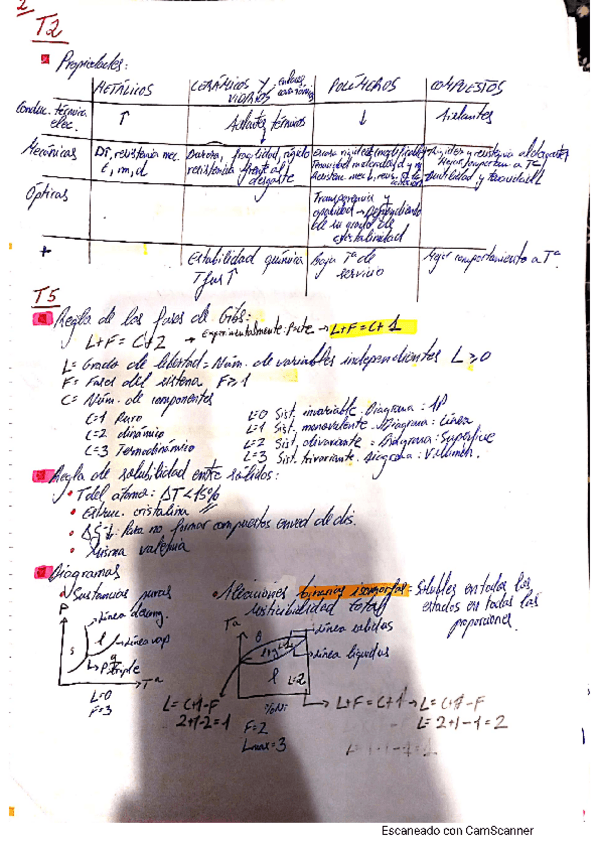 2
T2
Propiedades:
METÁLICOS
CERÁMICOS Y VIDRIOS
POLÍMEROS
COMPUESTOS
Conduc. térmica
elec.
↑
Aislantes térmicos
↓
Aislantes
Mecánicas
resistencia mec.
E, m, d
Dureza, fragilidad, rígido
resistencia frente al
desgaste
Mejor comportam a Tª
Ductilidad y tenacidad
Ópticas
Transparencia y
opacidad → Dependiendo
de su grado de
cristalinidad
+
Estabilidad química
T fus ↑
Baja Tª de
servicio
Mejor comportamiento a Tª
T5
Regla de las fases de Gibs:
L+F = C+2 → Experimentalmente: P=cte → L+F = C+1
L= Grado de libertad = Núm. de variables independientes L ≥ 0
F= Fases del sistema F ≥ 1
C= Núm. de componentes
C=1 Puro
C=2 dinámico
C=3 Termodinámico
L=0 Sist. invariable. Diagrama: 1P
L=1 Sist. monovalente. Diagrama: Línea
L=2 Sist. divariante = Diagrama: Superficie
L=3 Sist. trivariante. Diagrama: Volumen.
Regla de solubilidad entre sólidos:
T del átomo: ΔT < 15%
Estruc. cristalina //
Para no formar compuestos en ved de dis.
Misma valencia
Diagramas
Sustancias puras
P
Línea vap
P. triple
s
l
g
Tª
L=0
F=3
Aleaciones binarias isomorfas: Solubles en todos los
estados en todas las
proporciones.
total
Tª
línea solidus
línea liquidus
l
L=2
%Ni
L= C+1-F
2+1-2=1
F=2
Lmax=3
L+F = C+1 → L= C+1-F
L= 2+1-1 = 2
Escaneado con CamScanner